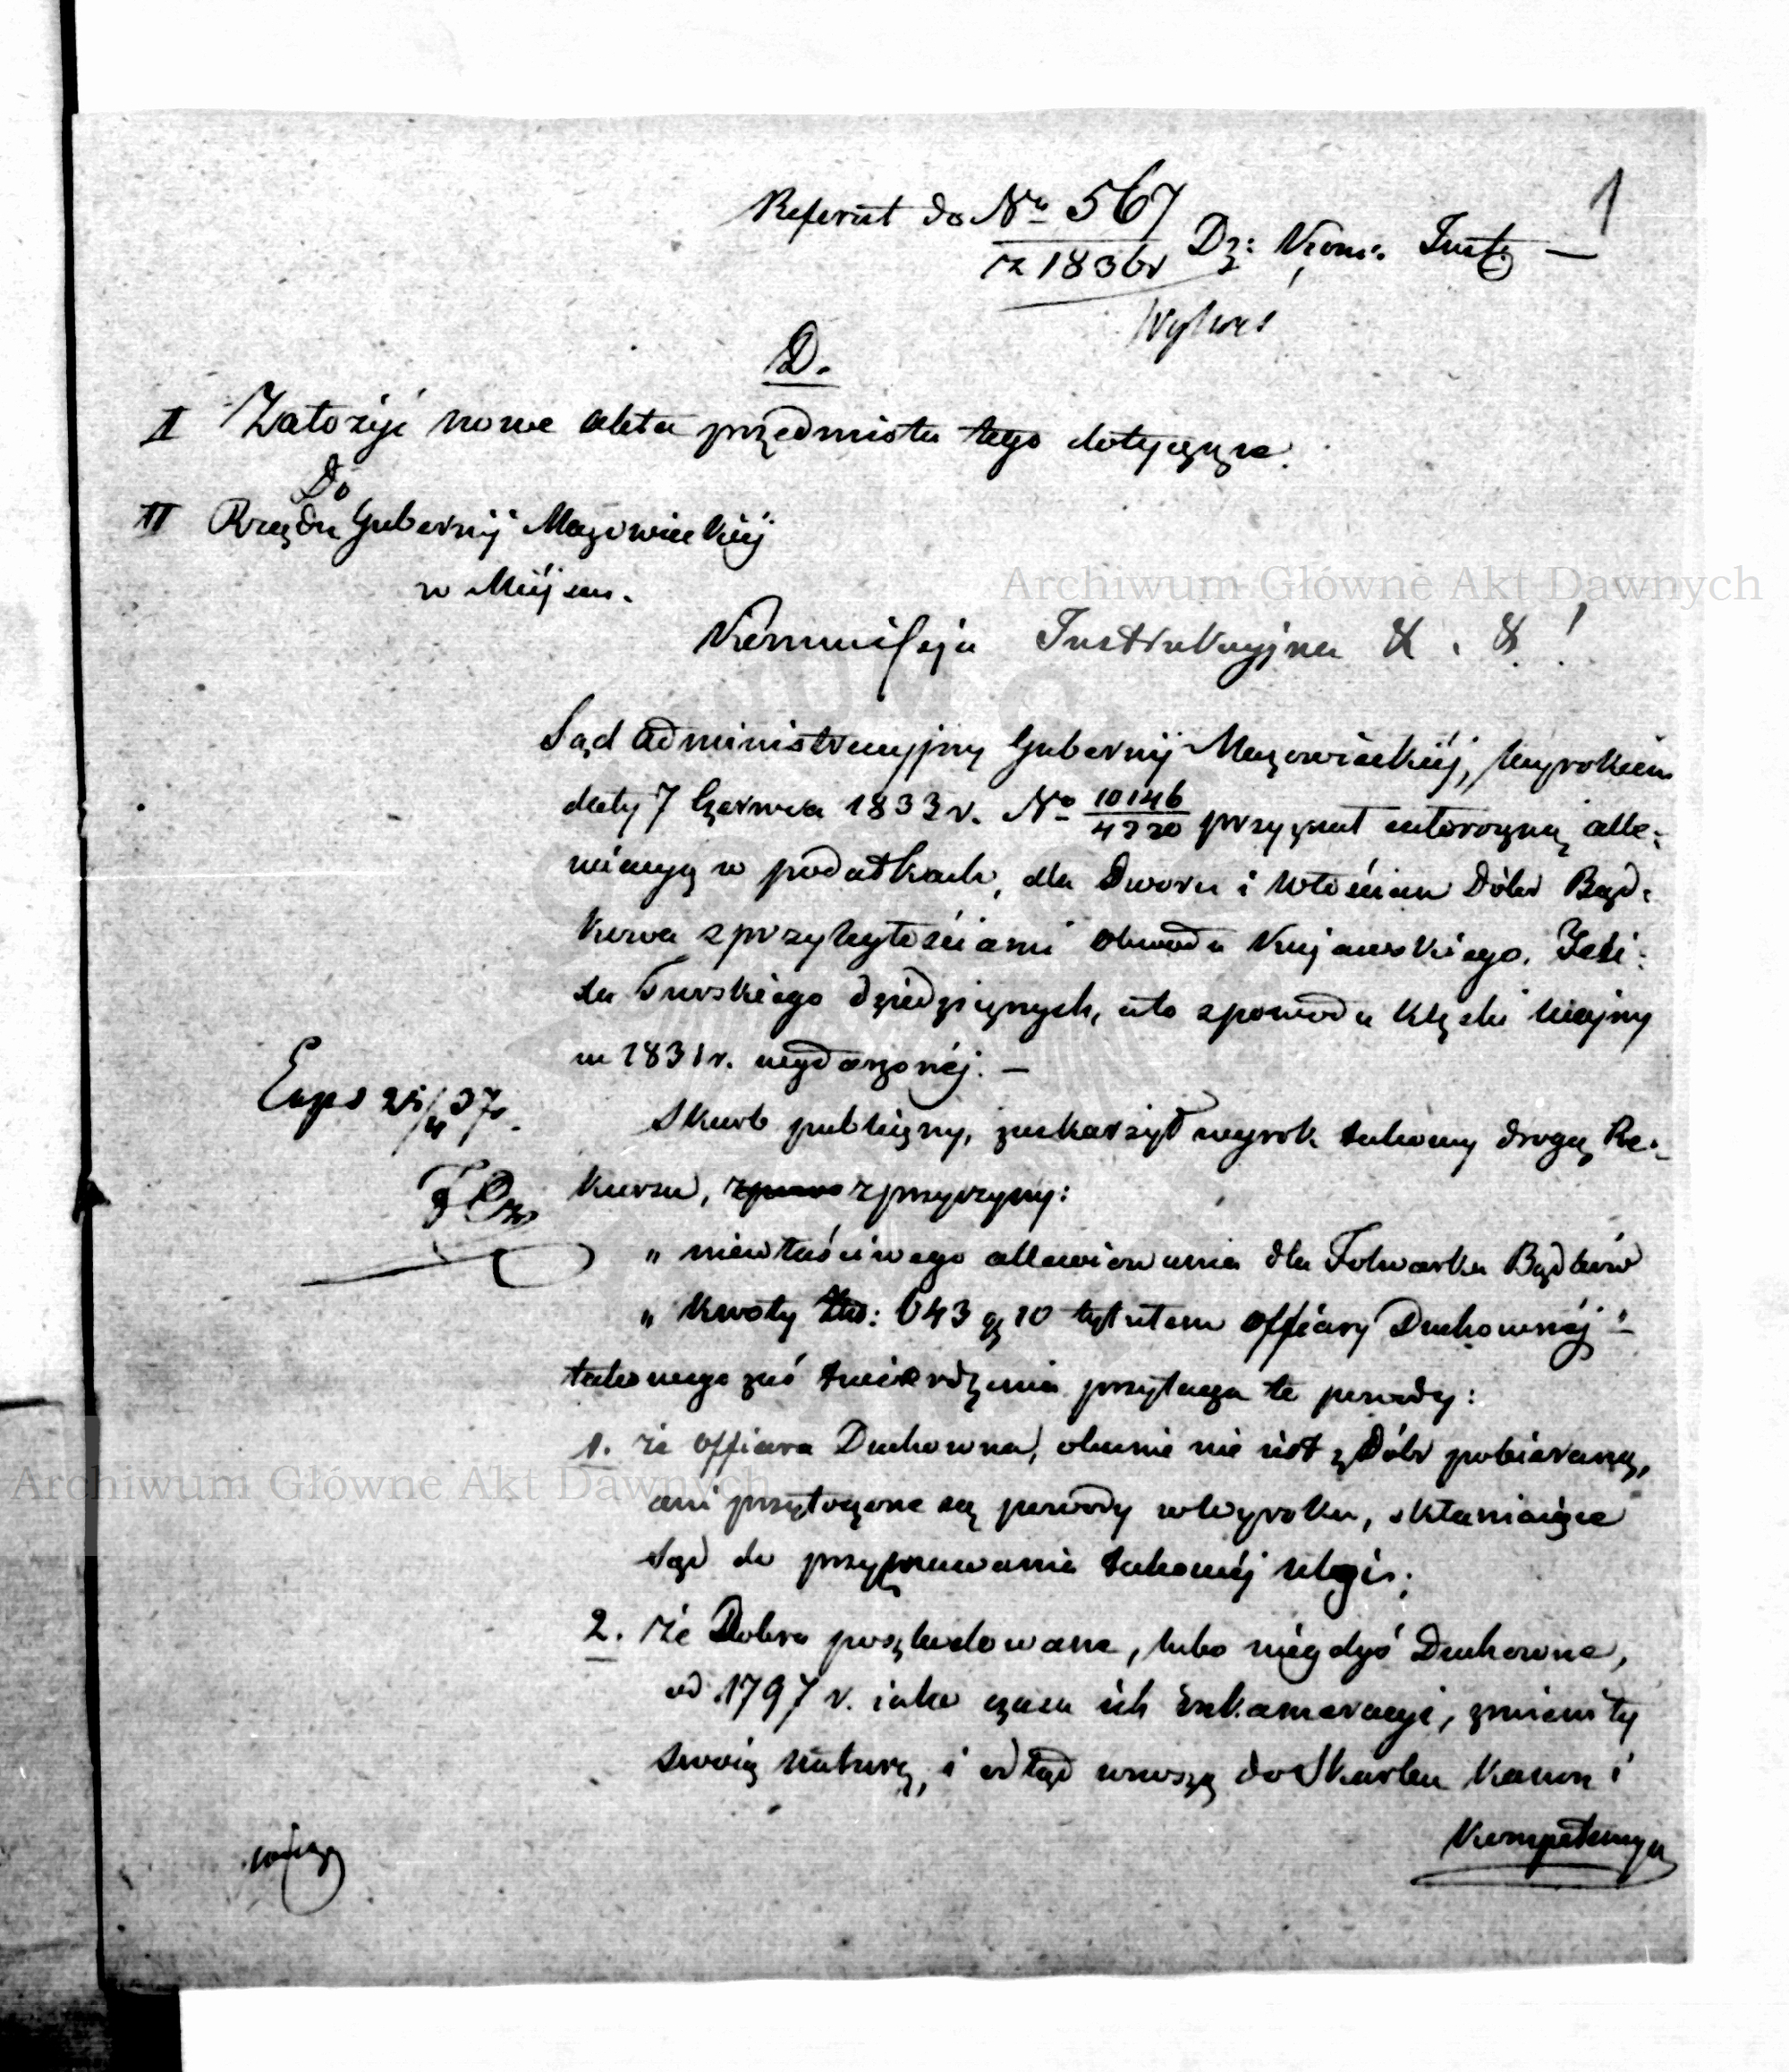 1
Referat do No 567
z 1836 r Dz: Kom: Instr —
D.
I Założyć nowe akta przedmiotu tego dotyczące.
Do
II Rządu Gubernij Mazowieckiéj
w Miéjscu.
Archiwum Główne Akt Dawnych
Kommissja Instrukcyjna & . &.
Sąd Administracyjny Gubernij Mazowieckiéj, Wyrokiem
daty 7 Czerwca 1833 r. No 10146/4220 przyznał uboczną alle:
wiacyą w podatkach, dla Dworu i Włościan Dóbr Bąd:
kowa z przyległościami Obwodu Kujawskiego,
Turskiego dziedzicznych, a to z powodu klęski wojny
w 1831 r. wydarzonéj. —
Exps 21/4 37 r.
Skarb publiczny, zaskarżył wyrok takowy drogą Re:
kursu, z przyczyny:
„ niewłaściwego allewiowania dla Folwarku Bądków
„ kwoty Złp: 643 gr 10 tytułem Offiary Duchownéj —
takowego zaś twierdzenia przytacza te powody:
1. że Offiara Duchowna, obecnie nie iest z Dóbr pobieraną,
ani przytoczone są powody w Wyroku, skłaniaiące
Archiwum Główne Akt Dawnych
Sąd do przyznawania takowéj ulgi;
2. że Dobra poszkodowane, lubo niegdyś Duchowne,
od 1797 r. iako czasu ich inkameracyi, zmieniły
swoię naturę, i odtąd wnoszą do Skarbu Kanon i
Kompetencya